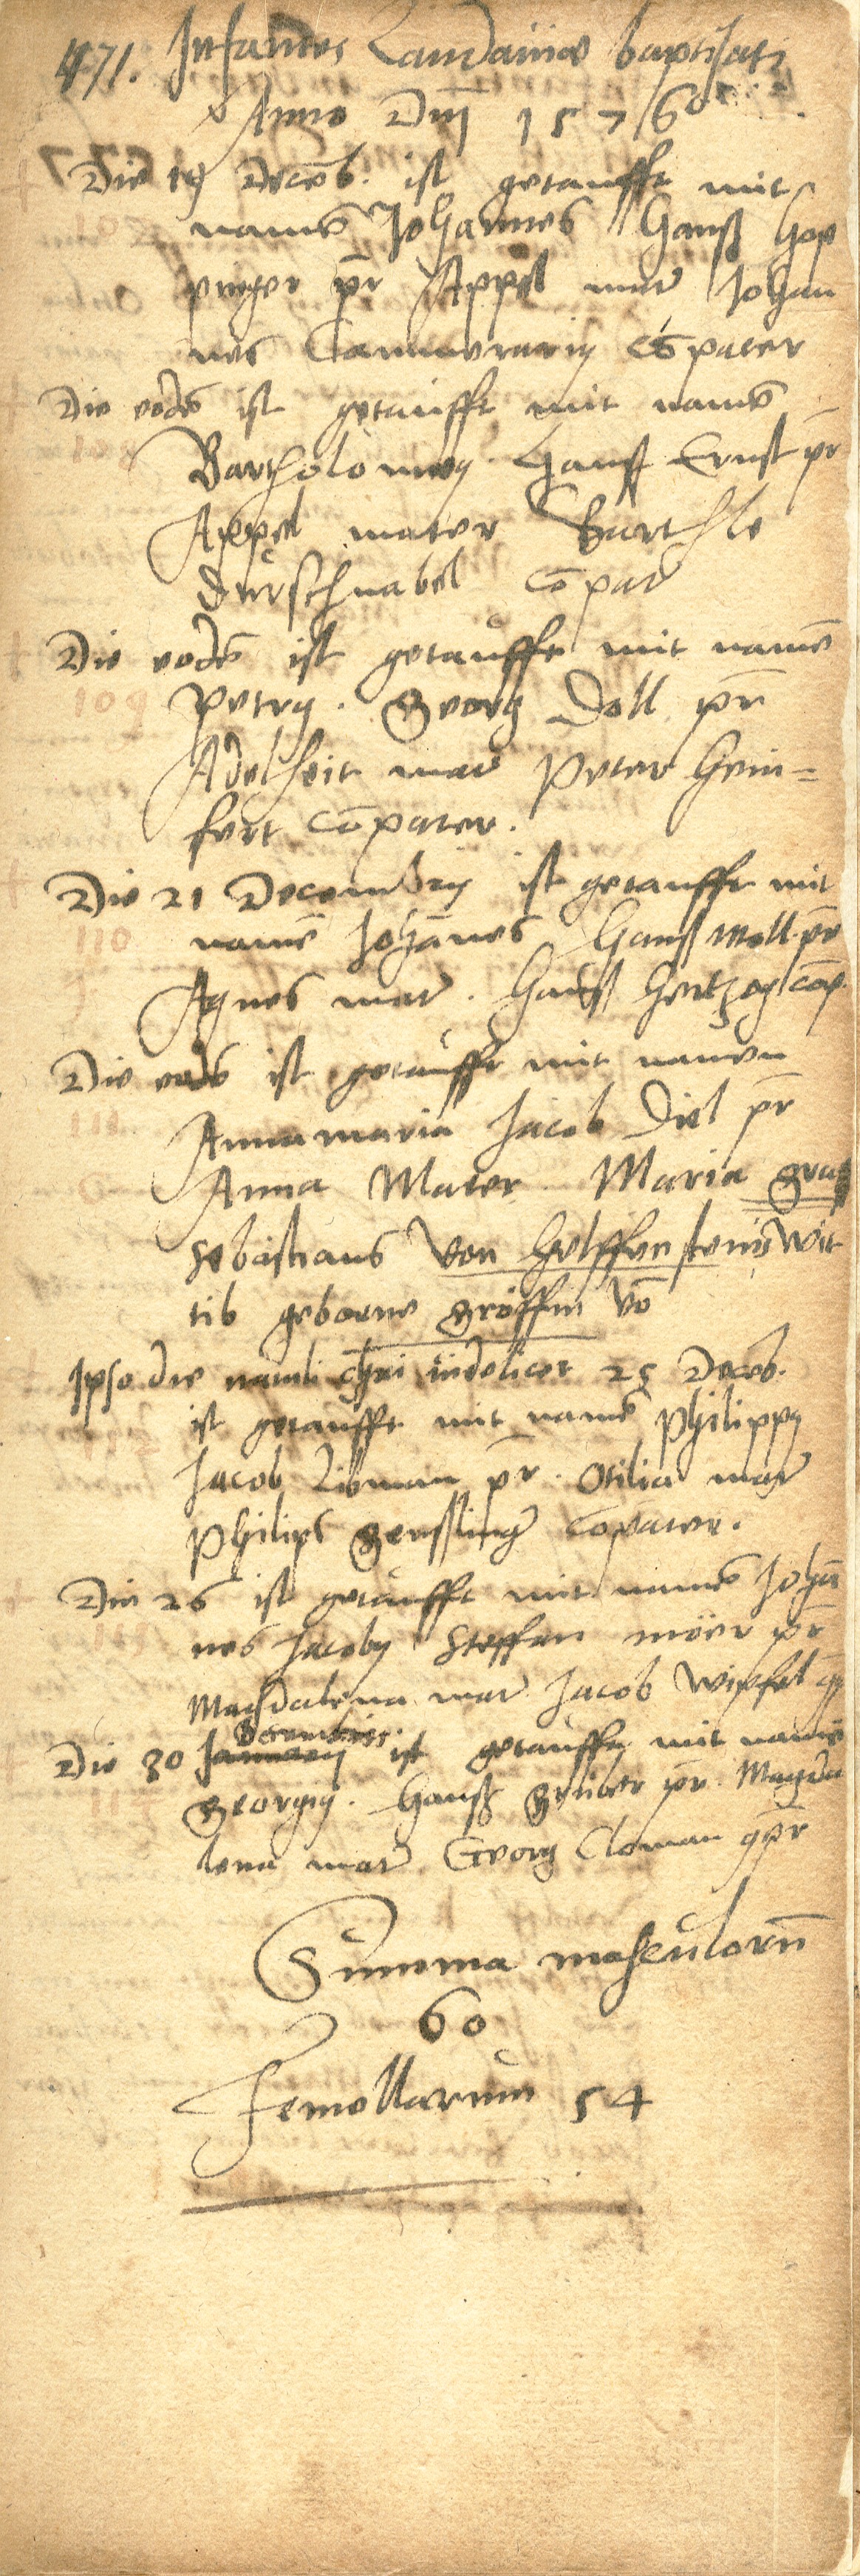 471. Infantes Landauiae baptisati
Anno Dnj 1576
Die 19 Deceb. ist getaufft mit
namē Johannes Hanß Hop
pr Appel mater Johan
nes Camerarig cōpater
Die eodē ist getaufft mit namē
Bartholomeg. Hanß Ernst pr
Appel mater Barthle
Dürschnabel cōpar
Die eodē ist getaufft mit namē
Petrg. Georg Doll pr
Adelheit mar Peter Hein=
fert cōpater.
Die 21 Decembrg ist getaufft mit
namē Johānes Hanß Moll pr
Agnes mar. Hanß Hertzog cōp.
Die eodē ist getaufft mit namen
Annamaria Jacob Diel pr
Anna Mater. Maria
Sebastians Von Helffenstenis Wit
tib geborne gröffin Vō
Ipso die natali Chri videlicet 25 Deceb.
ist getaufft mit namē Philippg
Jacob Libman pr. Otilia mar
Philips Genßling copater.
Die 26 ist getaufft mit namē Johā
nes Jacobg Steffan möer pr
Magdalena mar Jacob Wipfel
Decembris.
Die 30 Januarij ist getaufft mit namē
Georgig. Hanß Gruber pr. Magda
lena mar Georg Cloman gpr
Summa masculorū
60
Femellarum 54